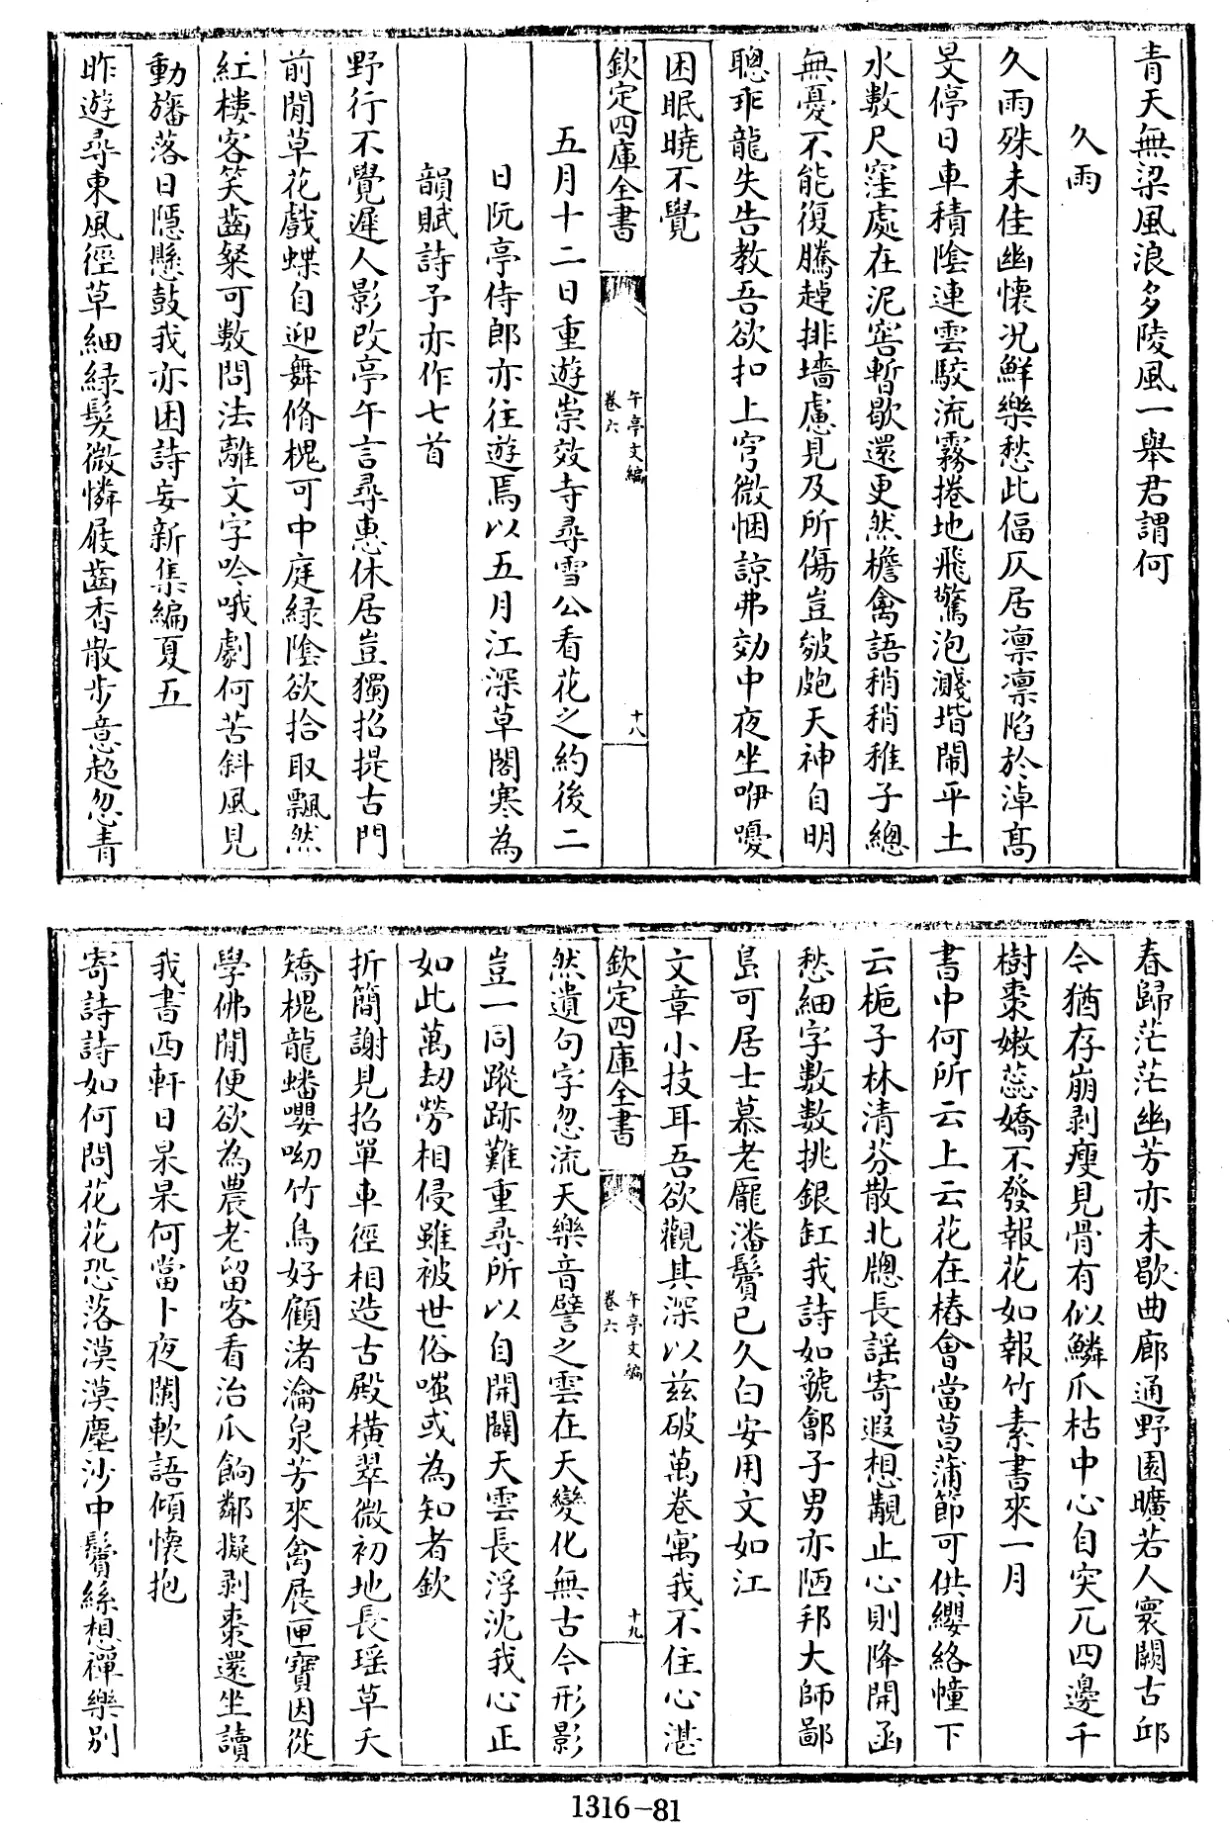 青天無梁風浪多陵風一舉君謂何
久雨
久雨殊未佳幽懷况鮮樂愁此偪仄居凛凛陷於淖髙
旻停日車積陰連雲駮流霧捲地飛驚泡濺堦鬧平土
水數尺窪處在泥窖暫歇還更然檐禽語稍稍稚子總
無憂不能復騰趠排墻慮見及所傷豈皴皰天神自明
聰乖龍失告教吾欲扣上穹微悃諒弗効中夜坐咿嚘
困眠曉不覺
欽定四庫全書
午亭文編
卷六
十八
五月十二日重遊崇效寺尋雪公看花之約後二
日阮亭侍郎亦往遊焉以五月江深草閣寒為
韻賦詩予亦作七首
野行不覺遲人影改亭午言尋惠休居豈獨招提古門
前閒草花戲蝶自迎舞脩槐可中庭緑陰欲拾取飄然
紅樓客笑齒粲可數問法離文字吟哦劇何苦斜風見
動旛落日隱懸鼓我亦困詩妄新集編夏五
昨遊尋東風徑草細緑髮微憐屐齒香散步意超忽青
春歸茫茫幽芳亦未歇曲廊通野園曠若人寰闕古邱
今猶存崩剥瘦見骨有似鱗爪枯中心自突兀四邊千
樹棗嫩蕊嬌不發報花如報竹素書來一月
書中何所云上云花在樁會當菖蒲節可供纓絡幢下
云梔子林清芬散北牕長謡寄遐想覯止心則降開函
愁細字數數挑銀缸我詩如虢鄶子男亦陋邦大師鄙
島可居士慕老龐潘鬢已久白安用文如江
文章小技耳吾欲觀其深以兹破萬卷寓我不住心湛
欽定四庫全書
午亭文編
卷六
十九
然遺句字忽流天樂音譬之雲在天變化無古今形影
豈一同蹤跡難重尋所以自開闢天雲長浮沈我心正
如此萬劫勞相侵雖被世俗嗤或為知者欽
折簡謝見招單車徑相造古殿橫翠微初地長瑶草夭
矯槐龍蟠嚶呦竹鳥好顧渚瀹泉芳來禽展匣寶因從
學佛閒便欲為農老留客看治瓜餉鄰擬剥棗還坐讀
我書西軒日杲杲何當卜夜闌軟語傾懷抱
寄詩詩如何問花花恐落漠漠塵沙中鬢絲想禪樂别
1316-81